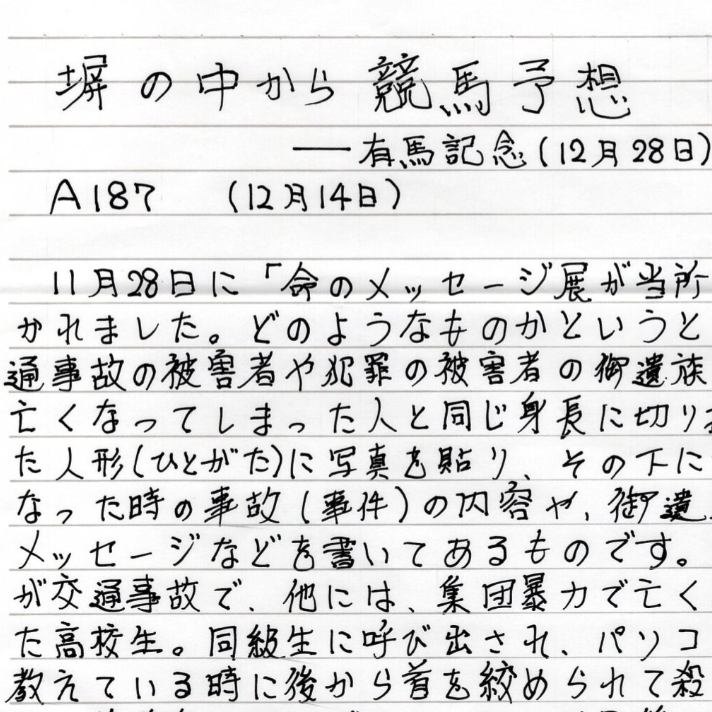 塀の中から競馬予想
――有馬記念(12月28日)
A187 (12月14日)
11月28日に「命のメッセージ展が当所
かれました。どのようなものかというと
通事故の被害者や犯罪の被害者の御遺族
亡くなってしまった人と同じ身長に切り
た人形(ひとがた)に写真を貼り、その下に
なった時の事故(事件)の内容や、御遺
メッセージなどを書いてあるものです。
が交通事故で、他には、集団暴力で亡く
た高校生。同級生に呼び出され、パソコ
教えている時に後から首を絞められて殺